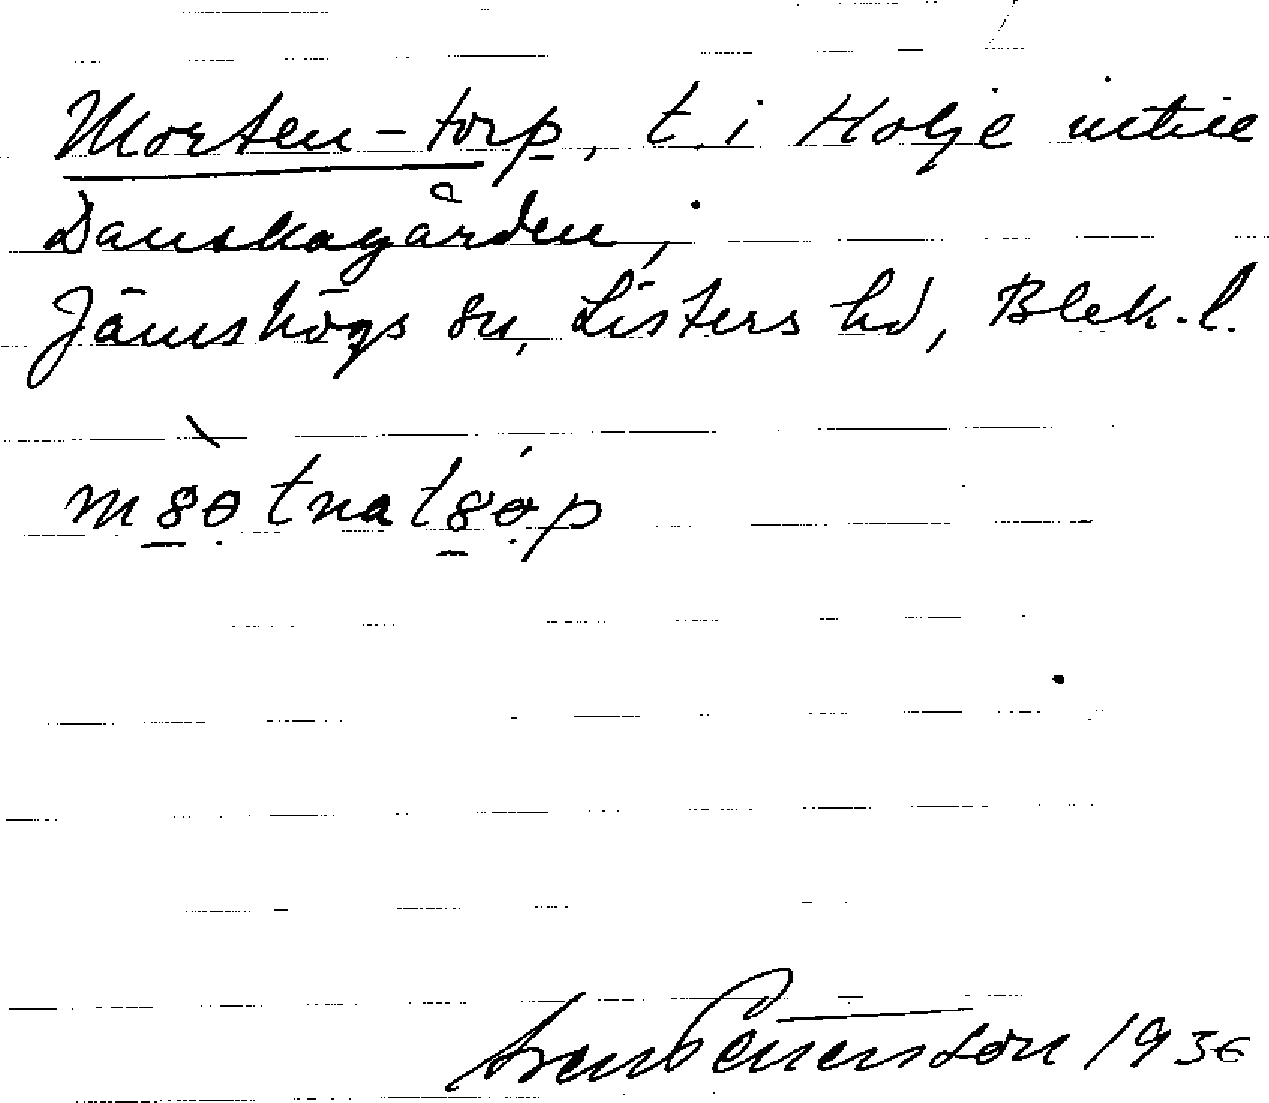 Morten-torp, t. i Holje intill
Danskagården,
Jämshögs sn, Listers hd, Blek. l.
Sven Benson 1936